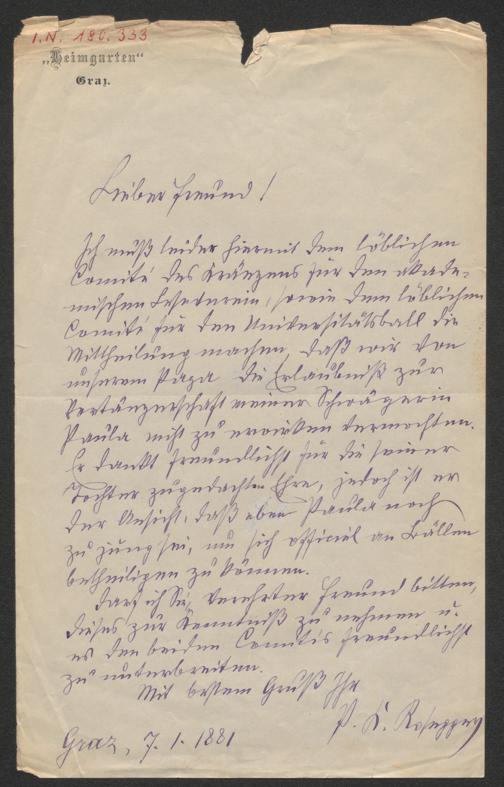 I.N. 180.333
„Heimgarten“
Graz.
Lieber Freund!
Ich muß leider hiermit dem löblichen
Comité des Kränzens für den akade-
mischen Leseverein, sowie dem löblichen
Comité für den Universitätsball die
Mittheilung machen, daß wir von
unserem Papa die Erlaubniß zur
Vortänzerschaft meiner Schwägerin
Paula nicht zu erwirken vermochten.
Er dankt freundlichst für die seiner
Tochter zugedachte Ehre, jedoch ist er
der Ansicht, daß eben Paula noch
zu jung sei, um sich officiel an Bällen
betheiligen zu können.
Darf ich Sie, verehrter Freund bitten,
dieses zur Kenntniß zu nehmen u.
es den beiden Comités freundlichst
zu unterbreiten.
Mit bestem Gruß Ihr
P. K. Rosegger
Graz, 7. 1. 1881